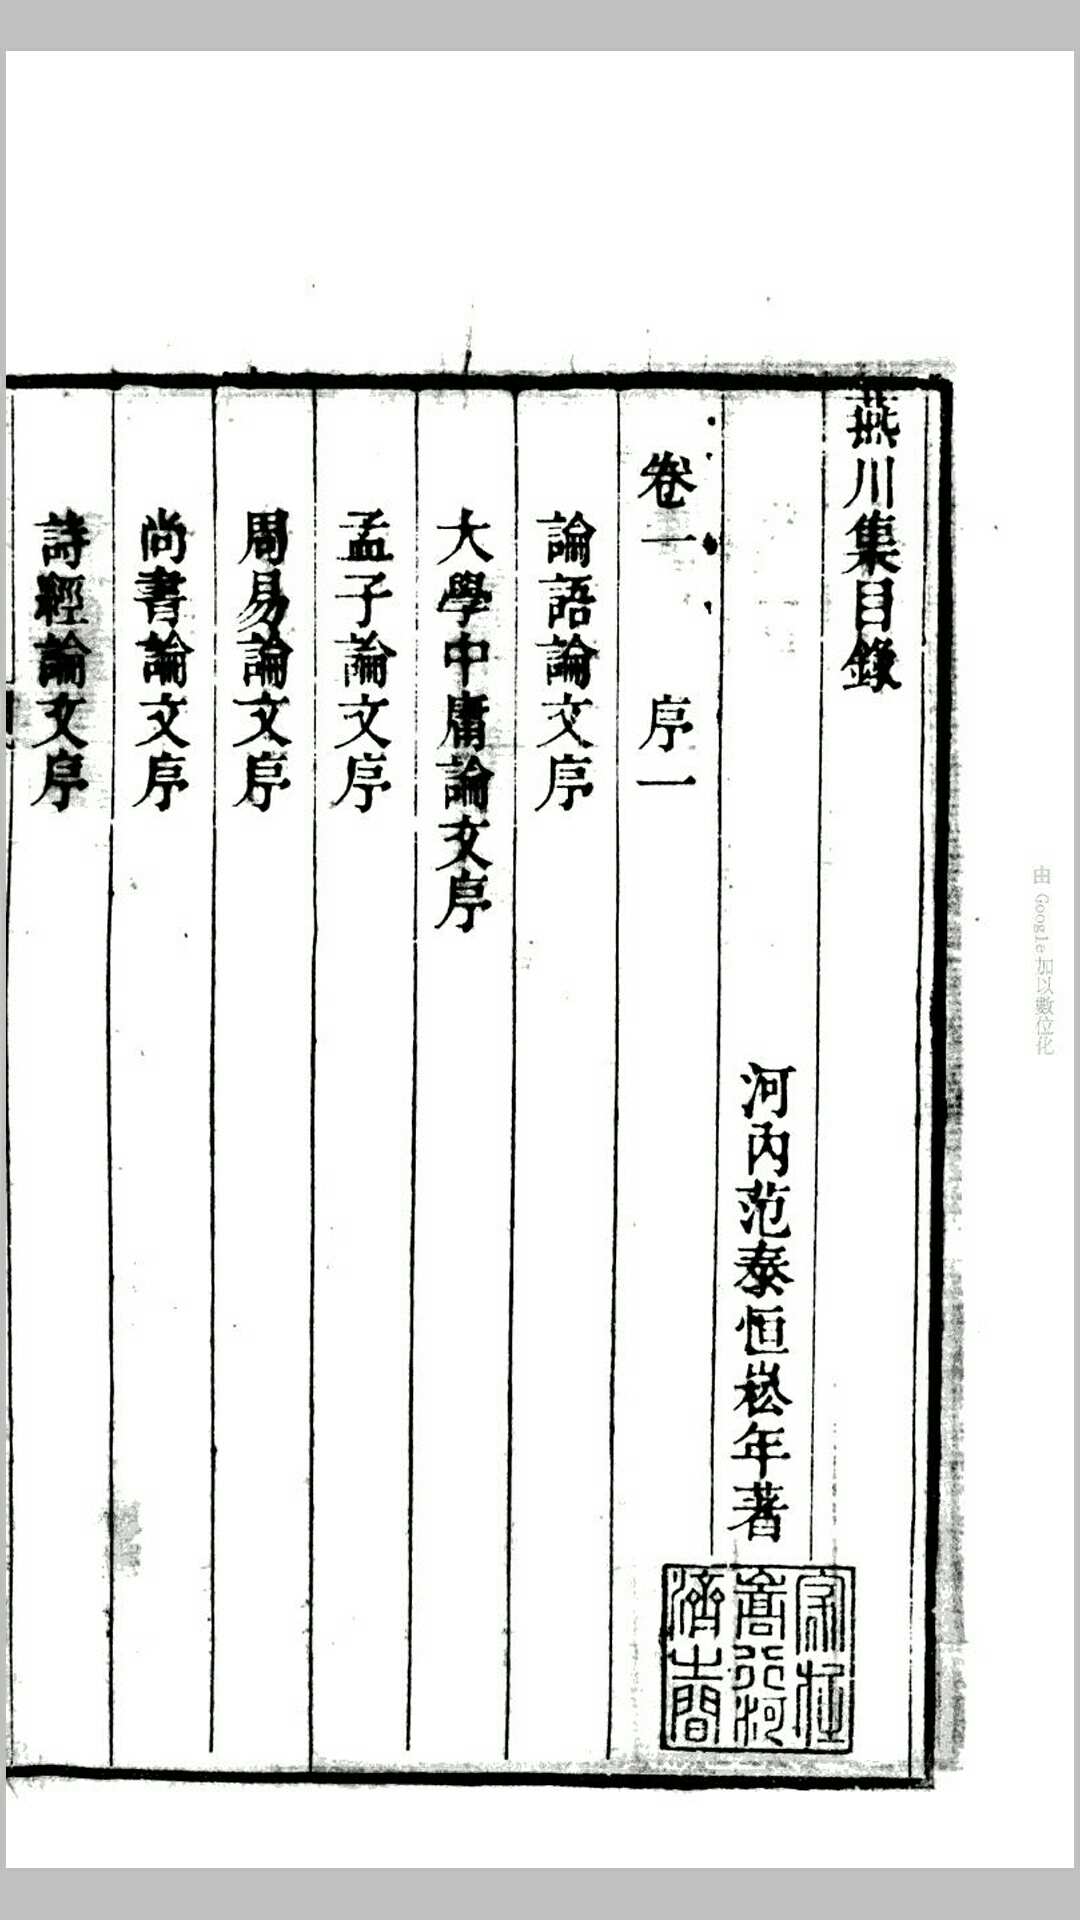 燕川集目錄
河內范泰恒崧年著
卷一 序一
論語論文序
大學中庸論文序
孟子論文序
周易論文序
尚書論文序
詩經論文序
家在嵩行河濟之間
由 Google 加以數位化